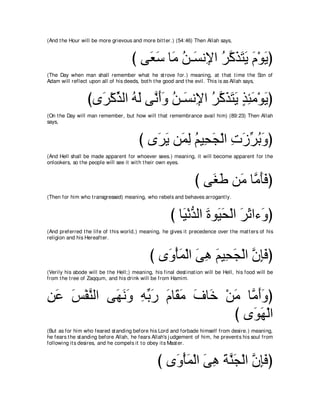 (And the Hour will be more grievous and more bitter.) (54:46) Then Allah says,
﴿ يَوْمَ يَتَذَكَّرُ الإِنسَـنُ مَا سَعَى ﴾
(The Day when man shall remember what he strove for.) meaning, at that time the Son of
Adam will reflect upon all of his deeds, both the good and the evil. This is as Allah says,
﴿يَوْمَئِذٍ يَتَذَكَّرُ الإِنسَـنُ وَأَنَّى لَهُ الذِّكْرَى﴾
(On the Day will man remember, but how will that remembrance avail him) (89:23) Then Allah
says,
﴿وَبُرِّزَتِ الْجَحِيمُ لِمَن يَرَى ﴾
(And Hell shall be made apparent for whoever sees.) meaning, it will become apparent for the
onlookers, so the people will see it with their own eyes.
﴿فَأَمَّا مَن طَغَى ﴾
(Then for him who transgressed) meaning, who rebels and behaves arrogantly.
﴿وَءاثَرَ الْحَيَوةَ الدُّنْيَا ﴾
(And preferred the life of this world,) meaning, he gives it precedence over the matters of his
religion and his Hereafter.
﴿فَإِنَّ الْجَحِيمَ هِىَ الْمَأْوَى ﴾
(Verily his abode will be the Hell;) meaning, his final destination will be Hell, his food will be
from the tree of Zaqqum, and his drink will be from Hamim.
﴿وَأَمَّا مَنْ خَافَ مَقَامَ رَبِّهِ وَنَهَى النَّفْسَ عَنِ
الْهَوَى ﴾
(But as for him who feared standing before his Lord and forbade himself from desire.) meaning,
he fears the standing before Allah, he fears Allah's judgement of him, he prevents his soul from
following its desires, and he compels it to obey its Master.
﴿فَإِنَّ الْجَنَّةَ هِىَ الْمَأْوَى ﴾